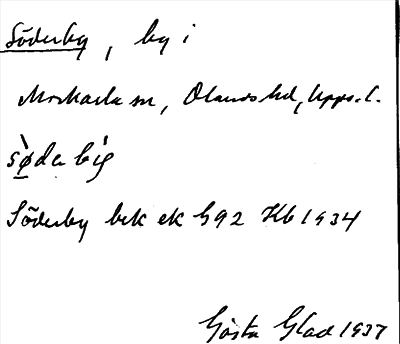 Söderby, by i
Morkarla sn, Olands hd, Upps. l.
sø̀dabẏ
Söderby bek ek 592 Kb 1934
Gösta Glad 1937